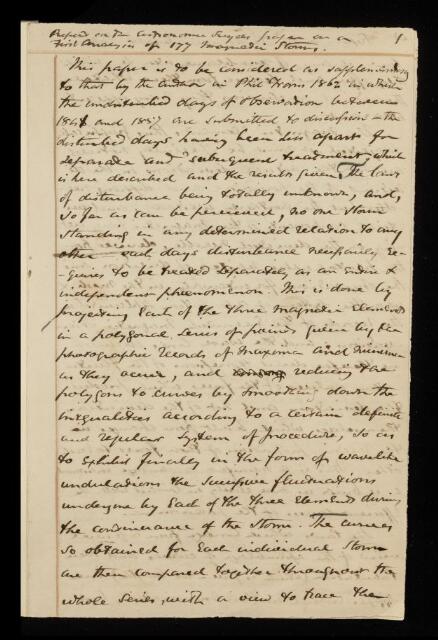 Report on the Astronomer Royal's paper on a
First Analysis of 177 Magnetic Storms.
1
This paper is to be considered as supplementary
to that by the author in Phil Trans 1862 in which
the undisturbed days of observation between
1841 and 1857 are submitted to discussion - the
disturbed days having been set apart for
separate and subsequent treatment, which
is here described and the results given. The laws
of disturbance being totally unknown, and,
so far as can be perceived, no one storm
standing in any determined relation to any
other - each days disturbance necessarily re-
quires to be treated separately as an entire &
independent phenomenon. This is done by
projecting each of the three magnetic elements
in a polygonal series of points given by the
photographic records of maxima and minima
as they occur, and reducing the
polygons to curves by smoothing down the
inequalities according to a certain definite
and regular system of procedure, so as
to exhibit finally in the form of wavelike
undulations the successive fluctuations
undergone by each of the three elements during
the continuance of the storm. The curves
so obtained for each individual storm
are then compared together throughout the
whole series, with a view to trace the